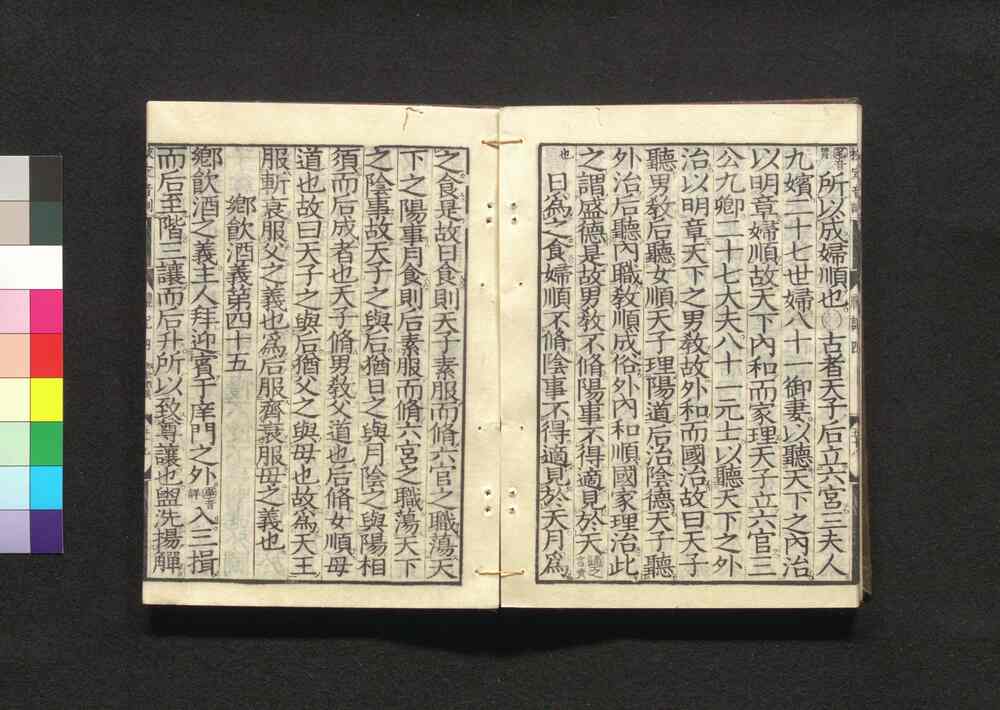 所以成婦順也〇古者天子后立六宮三夫人
九嬪二十七世婦八十一御妻以聽天下之內治
以明章婦順故天下內和而家理天子立六官三
公九卿二十七大夫八十一元士以聽天下之外
治以明章天下之男教故外和而國治故曰天子
聽男教后聽女順天子理陽道后治陰德天子聽
外治后聽內職教順成俗外內和順國家理治此
之謂盛德是故男教不脩陽事不得適見於天
也日為之食婦順不脩陰事不得適見於天月為
之食是故日食則天子素服而脩六官之職蕩天
下之陽事月食則后素服而脩六宮之職蕩天下
之陰事故天子之與后猶日之與月陰之與陽相
須而后成者也天子脩男教父道也后脩女順母
道也故曰天子之與后猶父之與母也故為天王
服斬衰服父之義也為后服齊衰服母之義也
鄉飲酒義第四十五
鄉飲酒之義主人拜迎賓于庠門之外入三揖
而后至階三讓而后升所以致尊讓也盥洗揚觶